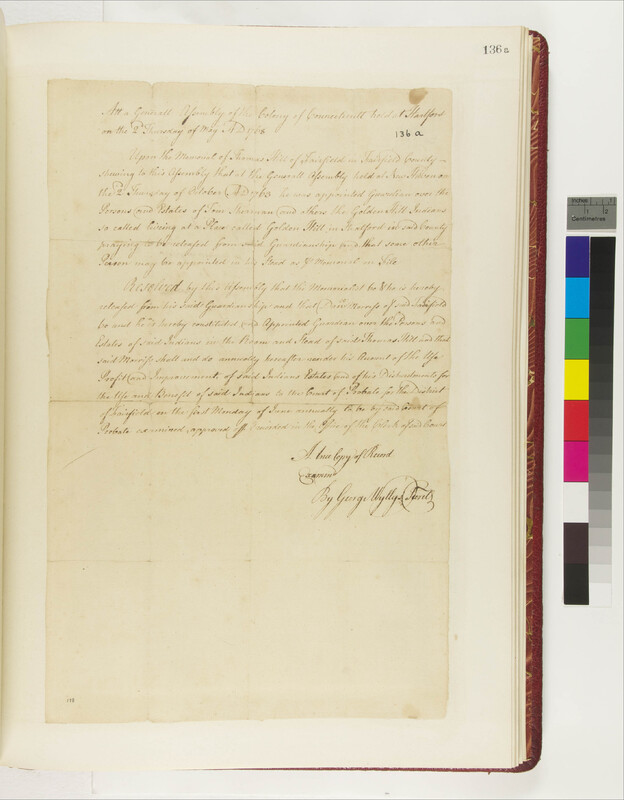 136 a
Att a Generall Assembly of the Colony of Connecticutt held at Hartford
on the 2d Thursday of May AD 1768
136 a
Upon the Memorial of Thomas Hill of Fairfield in Fairfield County
shewing to this Assembly that at the Generall Assembly held at New Haven on
the 2d Thursday of October AD 1763 he was appointed Guardian over the
Persons and Estates of Tom Sherman and the Golden Hill Indians
so called living at a Place called Golden Hill in Stratford in said County
praying to be released from said Guardianship and that some other
Person may be appointed in his Stead as pr Memorial on File
Resolved by this Assembly that the Memorialist be & he is hereby
released from his said Guardianship and that Danl Morriss of said Fairfield
be and he is hereby constituted and Appointed Guardian over the Persons and
Estates of said Indians in the Room and Stead of said Thomas Hill and that
said Morriss shall and do annually hereafter render his Account of the Use
Profits and Improvement of said Indians Estates and of his Disbursements for
the Use and Benefit of said Indians to the Court of Probate for the District
of Fairfield on the first Monday of June annually to be by said Court of
Probate examined approved & Divided in the Office of the Clerk of said Court
A true Copy of Record
Examind
By George Wyllys Secrety
Inches
1
2
Centimetres